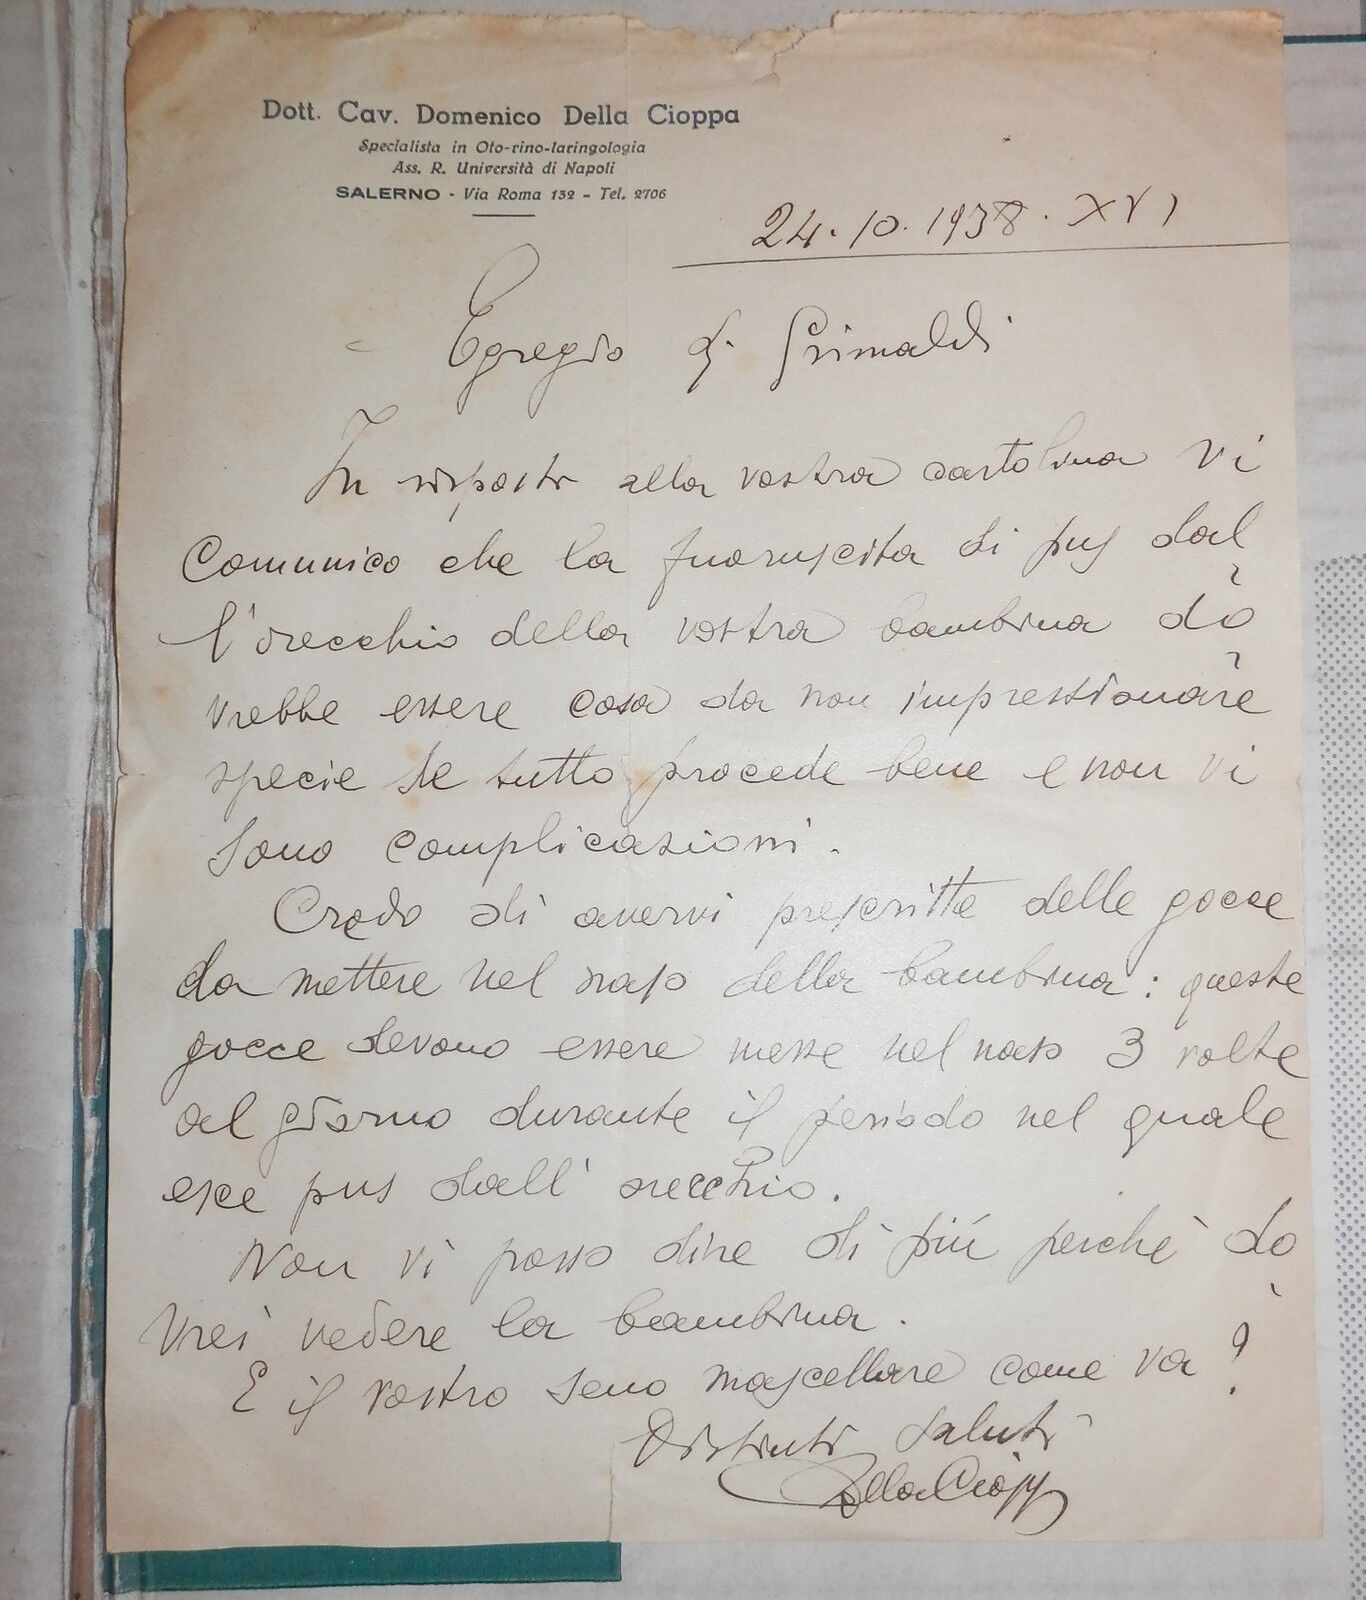 Dott. Cav. Domenico Della Cioppa
Specialista in Oto-rino-laringologia
Ass. R. Università di Napoli
SALERNO - Via Roma 132 - Tel. 2706
24.10.1938. XVI
Egregio S. Grimaldi
In risposta alla vostra cartolina vi
comunico che la fuoruscita di pus dal
l'orecchio della vostra bambina do
vrebbe essere cosa da non impressionare
specie se tutto procede bene e non vi
sono complicazioni.
Credo di avervi prescritte delle gocce
da mettere nel naso della bambina: queste
gocce devono essere messe nel naso 3 volte
al giorno durante il periodo nel quale
esce pus dall'orecchio.
Non vi posso dire di più perchè do
vrei vedere la bambina.
E il vostro seno mascellare come va?
Distinti saluti
Della Cioppa